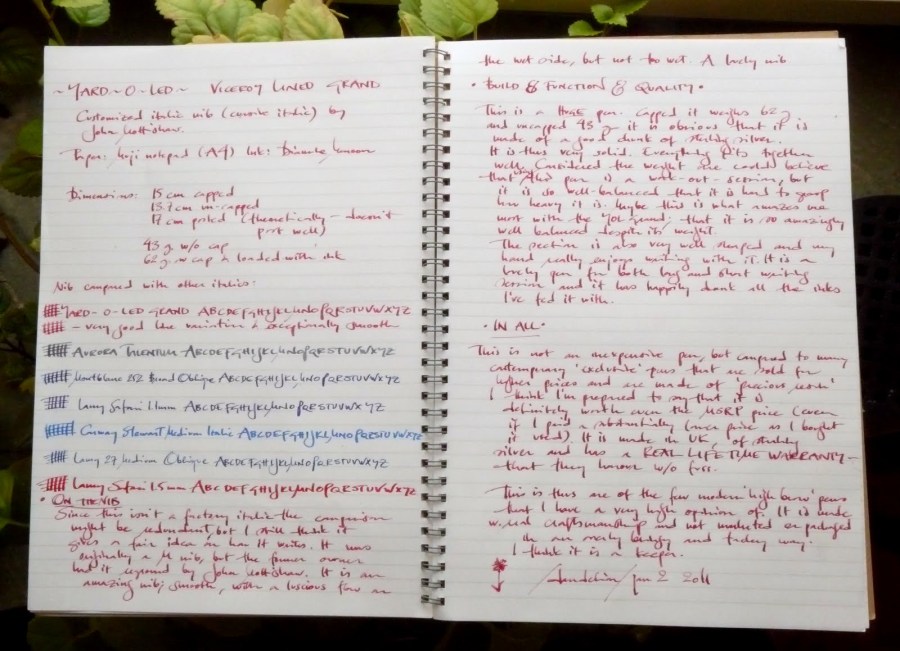 ~ YARD-O-LED ~ VICEROY LINED GRAND
Customized italic nib (cursive italic) by
John Mottishaw.
Paper: Muji notepad (A4) Ink: Diamine
Dimensions: 15 cm capped
13.7 cm un-capped
17 cm posted (theoretically - doesn't
post well)
45 g w/o cap
62 g w cap & loaded with ink
Nib compared with other italics:
YARD-O-LED GRAND ABCDEFGHIJKLMNOPQRSTUVWXYZ
- very good line variation & exceptionally smooth
AURORA TALENTUM ABCDEFGHIJKLMNOPQRSTUVWXYZ
Montblanc 252 Broad Oblique ABCDEFGHIJKLMNOPQRSTUVWXYZ
Lamy Safari 1.1mm ABCDEFGHIJKLMNOPQRSTUVWXYZ
Conway Stewart, Medium Italic ABCDEFGHIJKLMNOPQRSTUVWXYZ
Lamy 27, Medium Oblique ABCDEFGHIJKLMNOPQRSTUVWXYZ
Lamy Safari 1.5mm ABCDEFGHIJKLMNOPQRSTUVWXYZ
• ON THE NIB
Since this isn't a factory italic the comparison
might be redundant, but I still think it
gives a fair idea on how it writes. It was
originally a M nib, but the former owner
had it reground by John Mottishaw. It is an
amazing nib; smooth, with a luscious flow on
the wet side, but not too wet. A lovely nib
• BUILD & FUNCTION & QUALITY •
This is a HUGE pen. Capped it weighs 62 g
and uncapped 45 g - it is obvious that it is
made of a good chunk of sterling silver.
It is thus very solid. Everything fits together
well. Considered the weight one could believe
that this pen is a work-out-session, but
it is so well-balanced that it is hard to grasp
how heavy it is. Maybe this is what amazes me
most with the YOL Grand: that it is so amazingly
well balanced despite its weight.
The section is also very well shaped and my
hand really enjoys writing with it. It is a
lovely pen for both long and short writing
sessions and it has happily drank all the inks
I've fed it with.
• IN ALL •
This is not an inexpensive pen, but compared to many
contemporary 'exclusive' pens that are sold for
higher prices and are made of 'precious resin'
I think I'm prepared to say that it is
definitely worth even the MSRP price (even
if I paid a substantially lower price as I bought
it used). It is made in UK, of sterling
silver and has a REAL LIFE TIME WARRANTY -
that they honour w/o fuss.
This is thus one of the few modern 'high-brow' pens
that I have a very high opinion of. It is made
w. real craftsmanship and not marketed or packaged
in an overly bulgy and tacky way.
I think it is a keeper.
Jan 2 2011